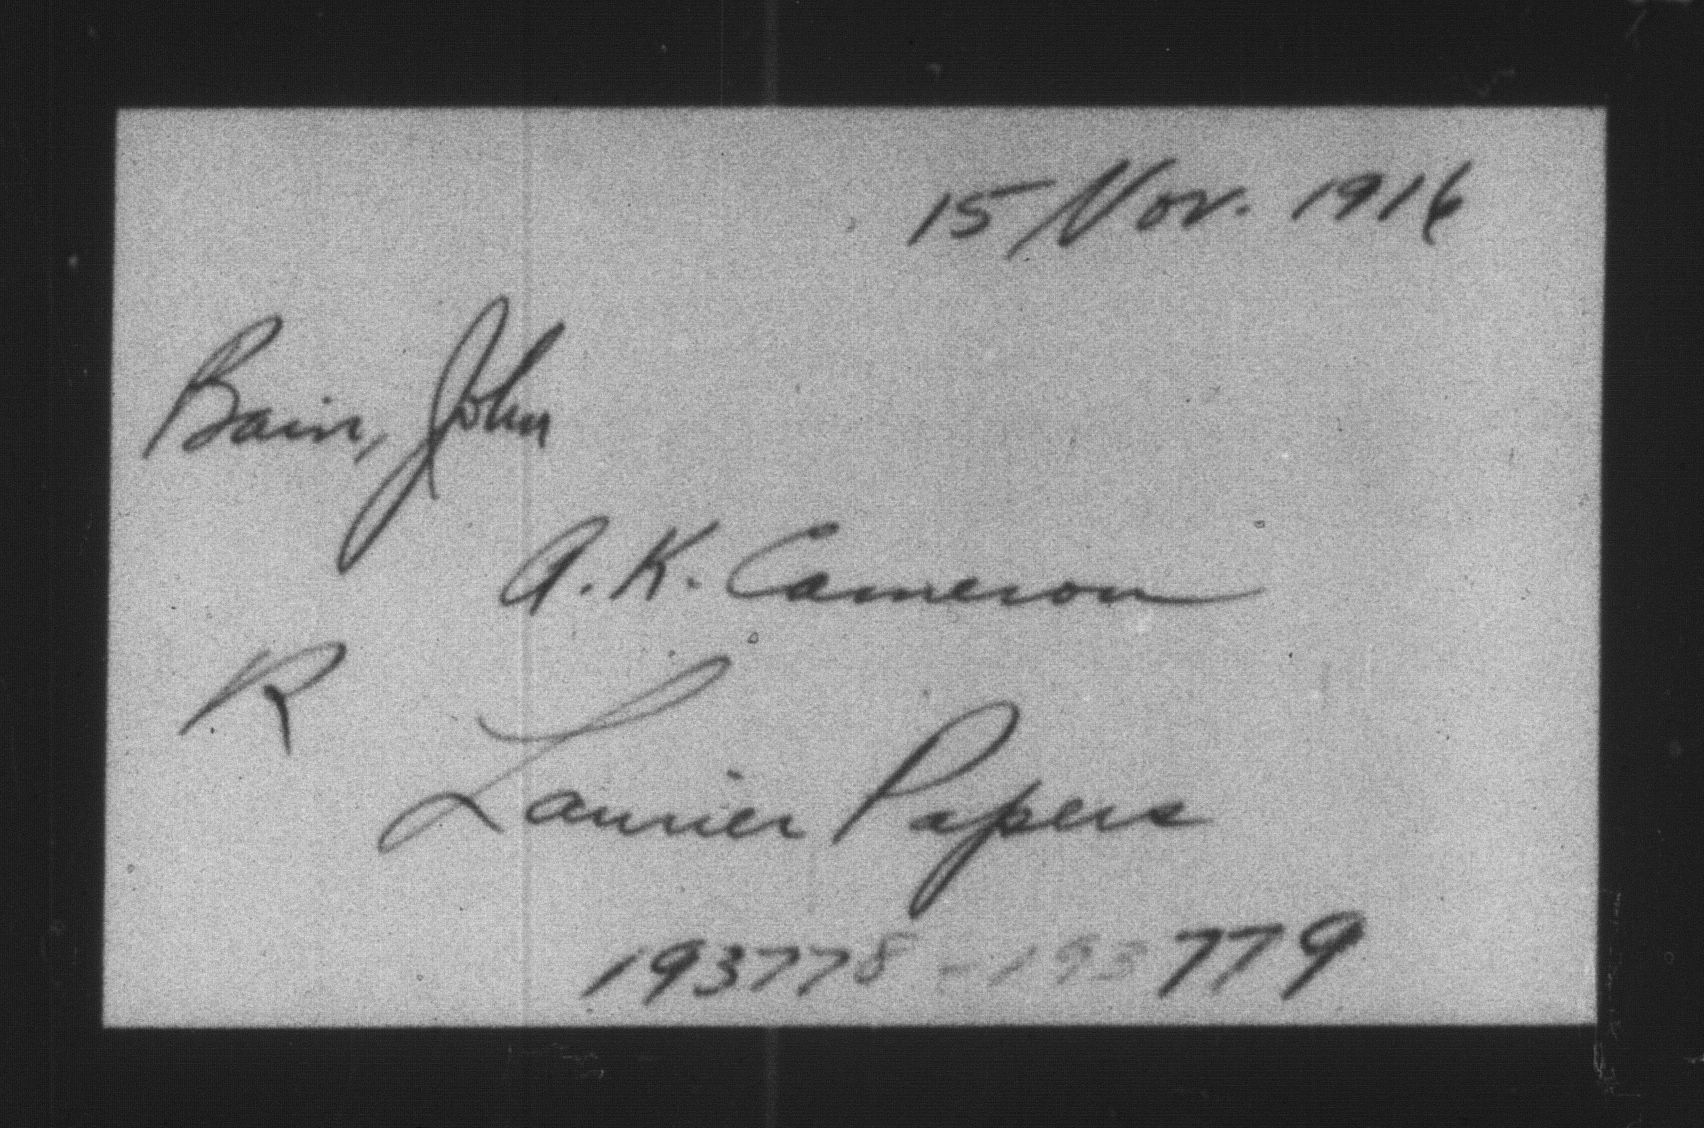 15 Nov. 1916
Bain, John
A. K. Cameron
R
Laurier Papers
193778 - 193779